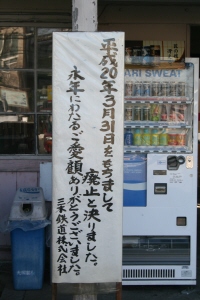 平成20年3月31日をもちまして
廃止と決りました。
永年にわたるご愛顧ありがとうございました。
三木鉄道株式会社
ARI SWEAT